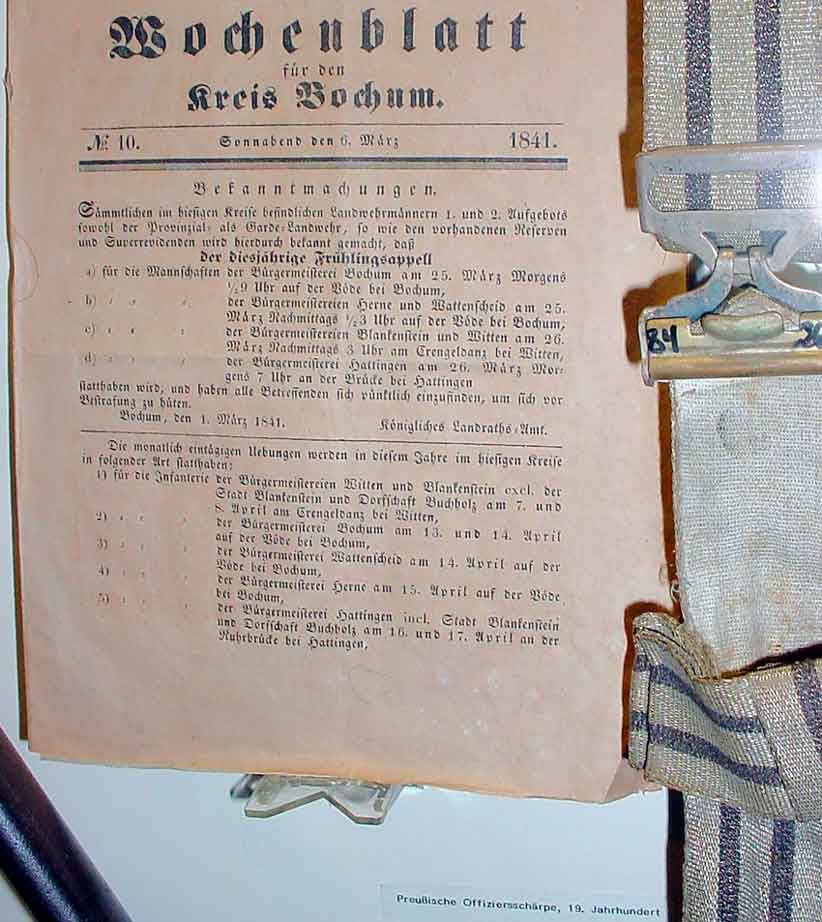 Wochenblatt
für den
Kreis Bochum.
№ 10. Sonnabend den 6. März 1841.
Bekanntmachungen.
Sämmtlichen im hiesigen Kreise befindlichen Landwehrmännern 1. und 2. Aufgebots
sowohl der Provinzial- als Garde-Landwehr, so wie den vorhandenen Reserven
und Superrevidenden wird hierdurch bekannt gemacht, daß
der diesjährige Frühlingsappell
a) für die Mannschaften der Bürgermeisterei Bochum am 25. März Morgens
½9 Uhr auf der Vöde bei Bochum,
b) " " " der Bürgermeistereien Herne und Wattenscheid am 25.
März Nachmittags ½3 Uhr auf der Vöde bei Bochum,
c) " " " der Bürgermeistereien Blankenstein und Witten am 26.
März Nachmittags 3 Uhr am Crengeldanz bei Witten,
d) " " " der Bürgermeisterei Hattingen am 26. März Mor-
gens 7 Uhr an der Brücke bei Hattingen
statthaben wird, und haben alle Betreffenden sich pünktlich einzufinden, um sich vor
Bestrafung zu hüten.
Bochum, den 1. März 1841. Königliches Landraths-Amt.
Die monatlich eintägigen Uebungen werden in diesem Jahre im hiesigen Kreise
in folgender Art statthaben:
1) für die Infanterie der Bürgermeistereien Witten und Blankenstein excl. der
Stadt Blankenstein und Dorfschaft Buchholz am 7. und
8. April am Crengeldanz bei Witten,
2) " " " der Bürgermeisterei Bochum am 13. und 14. April
auf der Vöde bei Bochum,
3) " " " der Bürgermeisterei Wattenscheid am 14. April auf der
Vöde bei Bochum,
4) " " " der Bürgermeisterei Herne am 15. April auf der Vöde
bei Bochum,
5) " " " der Bürgermeisterei Hattingen incl. Stadt Blankenstein
und Dorfschaft Buchholz am 16. und 17. April an der
Ruhrbrücke bei Hattingen,
84 26
Preußische Offiziersschärpe, 19. Jahrhundert